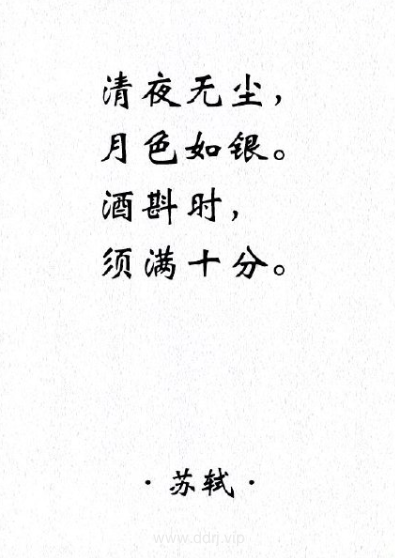 清夜无尘，
月色如银。
酒斟时，
须满十分。
· 苏轼 ·
www.ddrj.vip